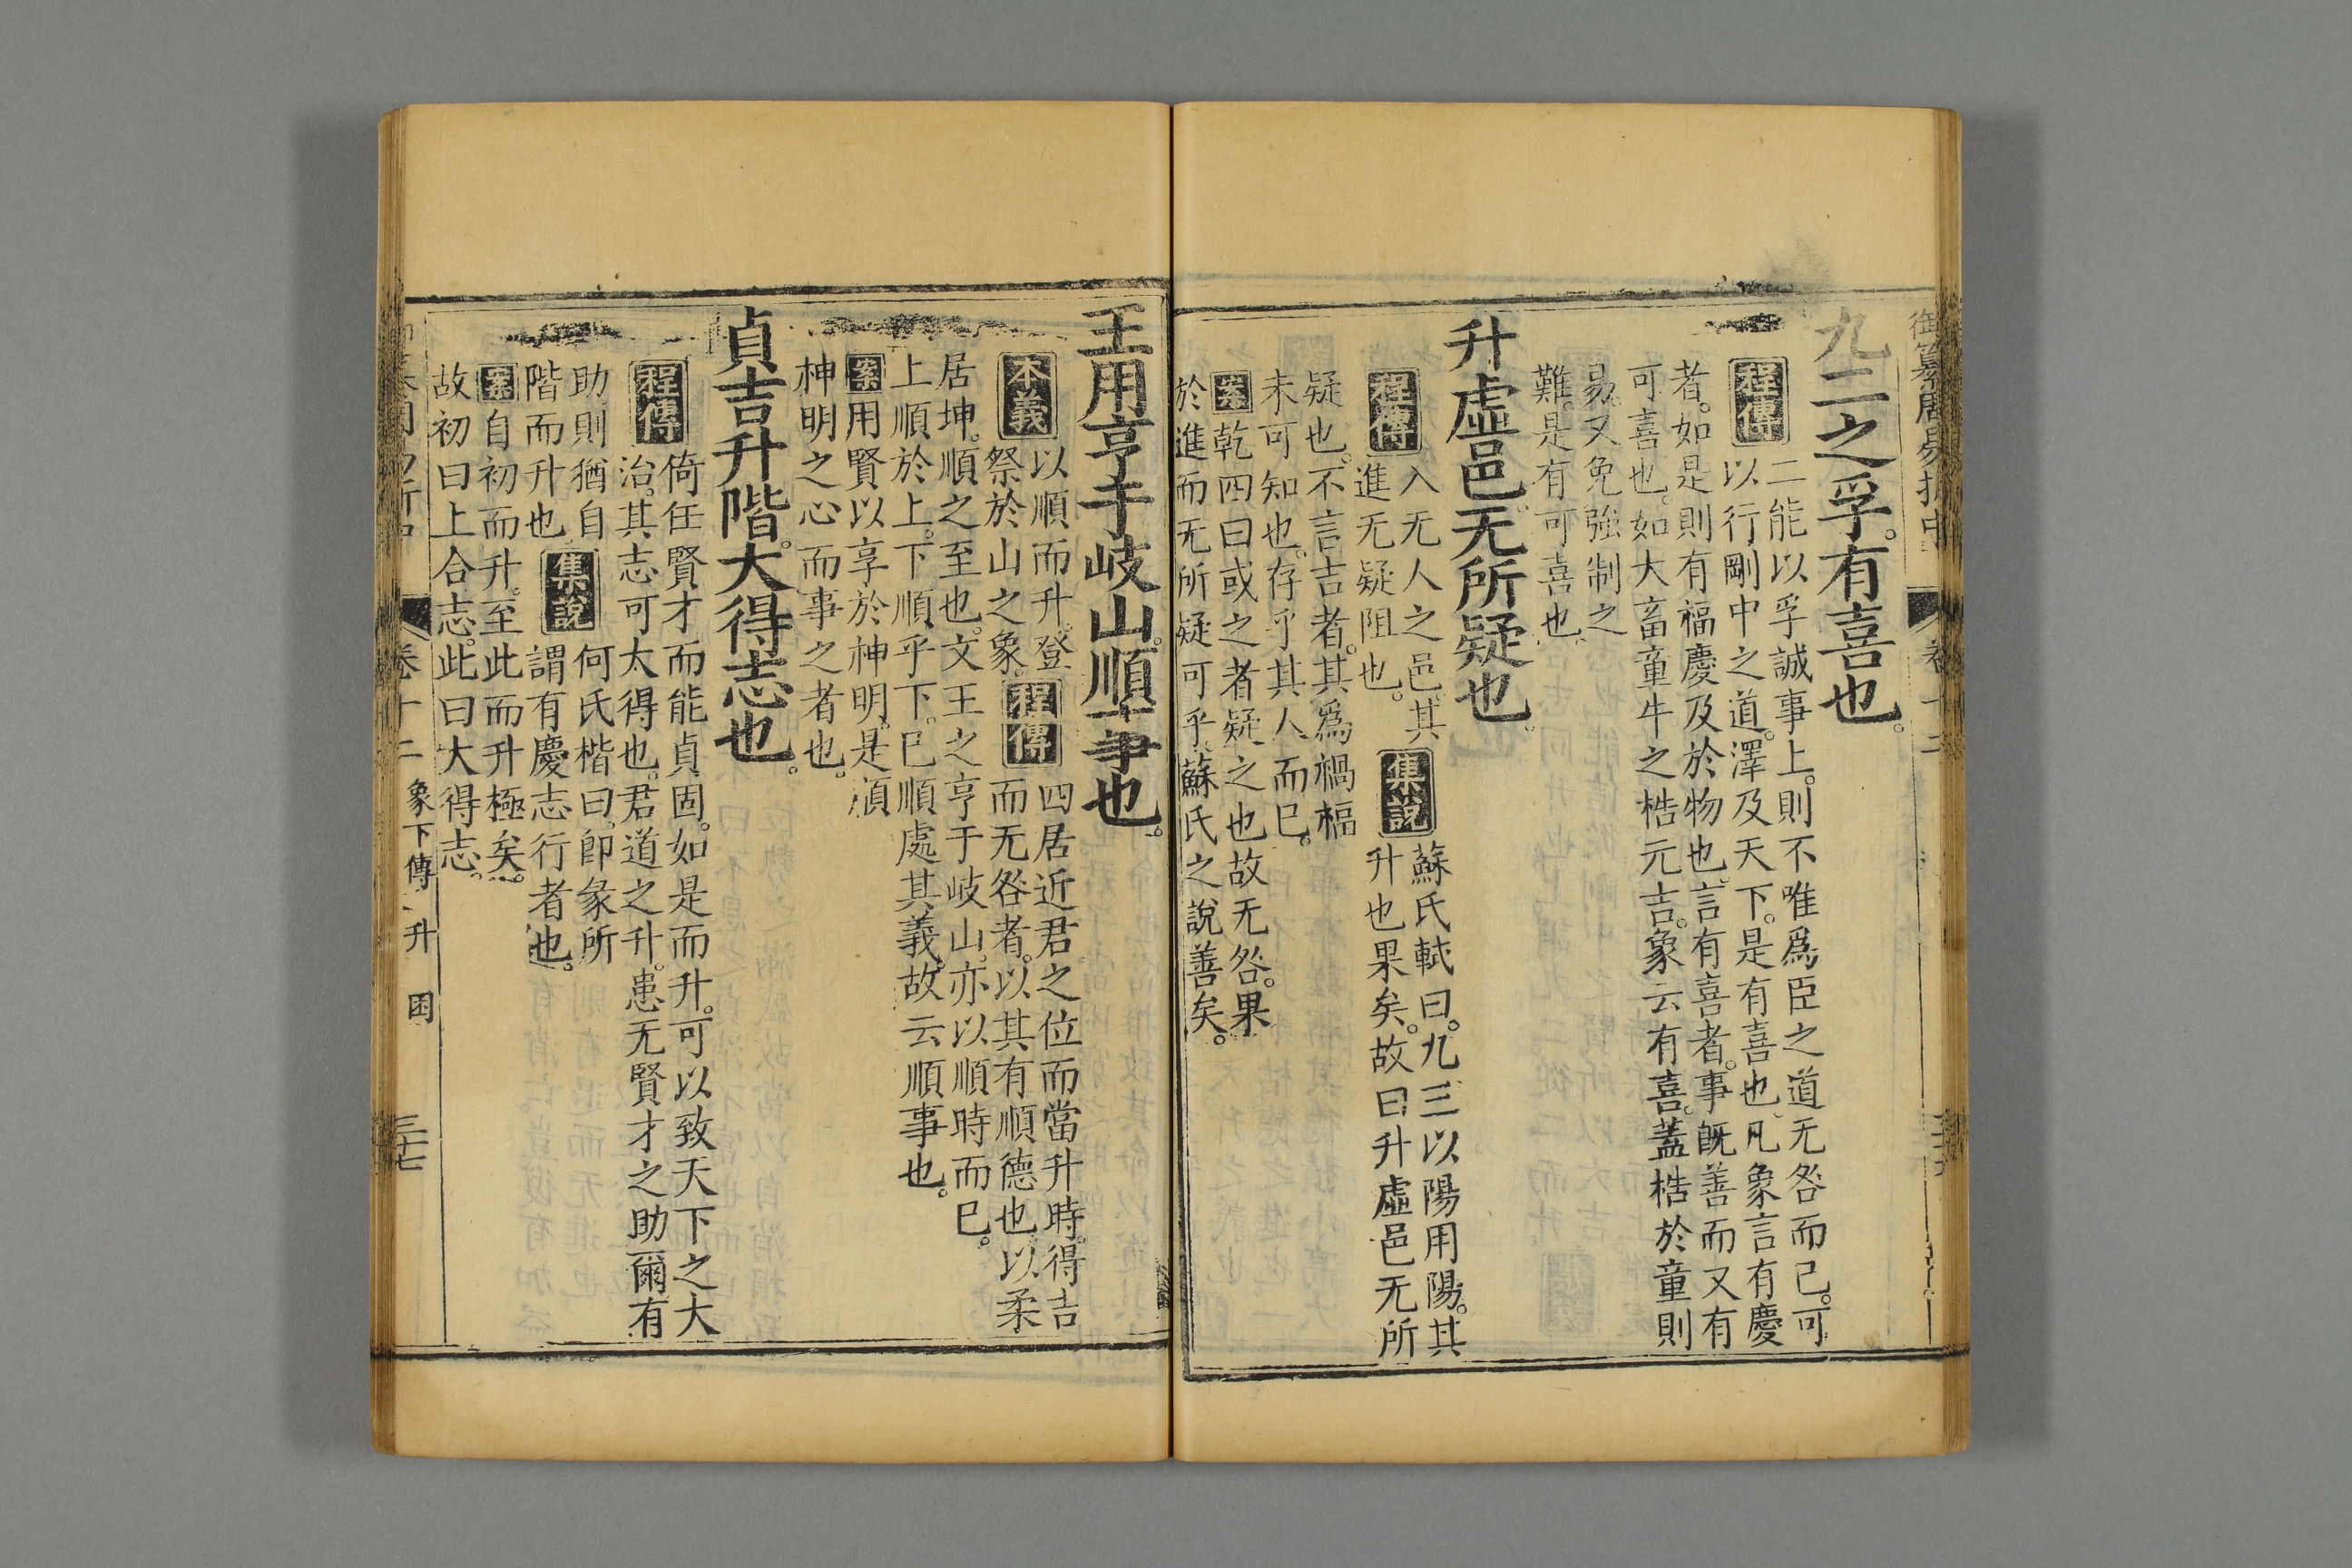 九二之孚。有喜也。
程傳
二能以孚誠事上。則不唯爲臣之道无咎而已。可
以行剛中之道。澤及天下。是有喜也。凡象言有慶
者。如是則有福慶及於物也。言有喜者。事旣善而又有
可喜也。如大畜童牛之梏元吉。象云有喜。蓋梏於童則
易。又免強制之
難。是有可喜也。
升虛邑。无所疑也。
程傳
入无人之邑。其
進无疑阻也。
集說
蘇氏軾曰。九三以陽用陽。其
升也果矣。故曰升虛邑无所
疑也。不言吉者。其爲禍福
未可知也。存乎其人而已。
案乾四曰或之者疑之也故无咎。果
於進而无所疑可乎。蘇氏之說善矣。
王用亨于岐山。順事也。
本義
以順而升。登
祭於山之象。
程傳
四居近君之位而當升時。得吉
而无咎者。以其有順德也。以柔
居坤。順之至也。文王之亨于岐山。亦以順時而已。
上順於上。下順乎下。已順處其義。故云順事也。
案用賢以享於神明。是順
神明之心而事之者也。
貞吉升階。大得志也。
程傳
倚任賢才而能貞固。如是而升。可以致天下之大
治。其志可大得也。君道之升。患无賢才之助爾。有
助則猶自
階而升也。
集說
何氏楷曰。卽彖所
謂有慶志行者也。
案自初而升。至此而升極矣。
故初曰上合志。此曰大得志。
卷十二 象下傳 升 困 三十七